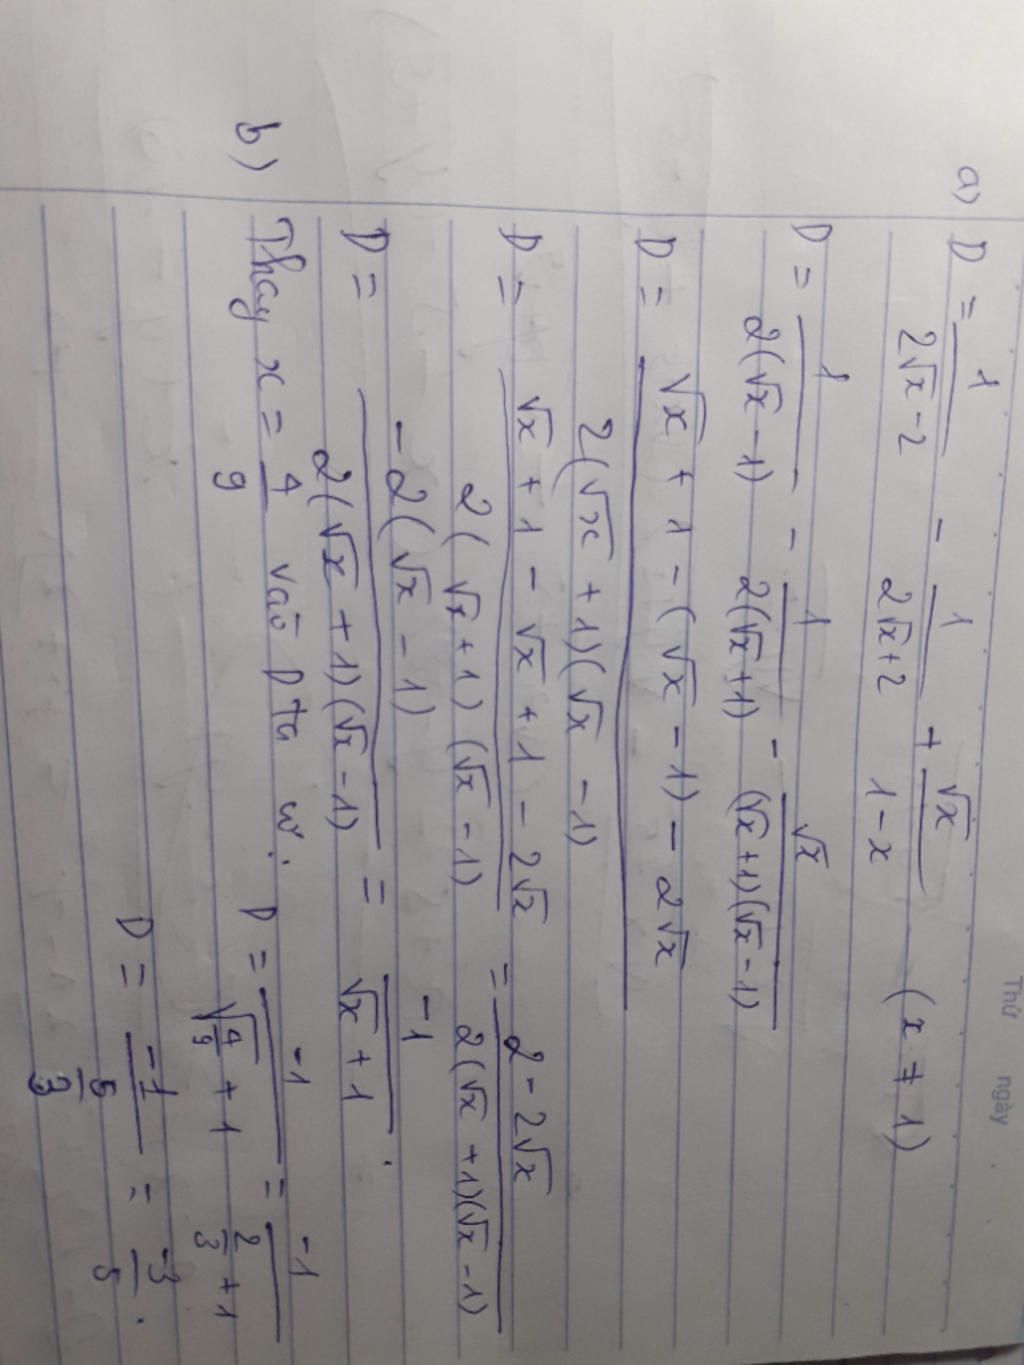 Thứ ngày
a) D = 1/(2√x - 2) - 1/(2√x + 2) + √x/(1 - x) (x ≠ 1)
D = 1/(2(√x - 1)) - 1/(2(√x + 1)) - √x/((√x + 1)(√x - 1))
D = (√x + 1 - (√x - 1) - 2√x)/(2(√x + 1)(√x - 1))
D = (√x + 1 - √x + 1 - 2√x)/(2(√x + 1)(√x - 1)) = (2 - 2√x)/(2(√x + 1)(√x - 1))
D = -2(√x - 1)/(2(√x + 1)(√x - 1)) = -1/(√x + 1).
b) Thay x = 4/9 vào D ta có: D = -1/(√(4/9) + 1) = -1/(2/3 + 1)
D = -1/(5/3) = -3/5.